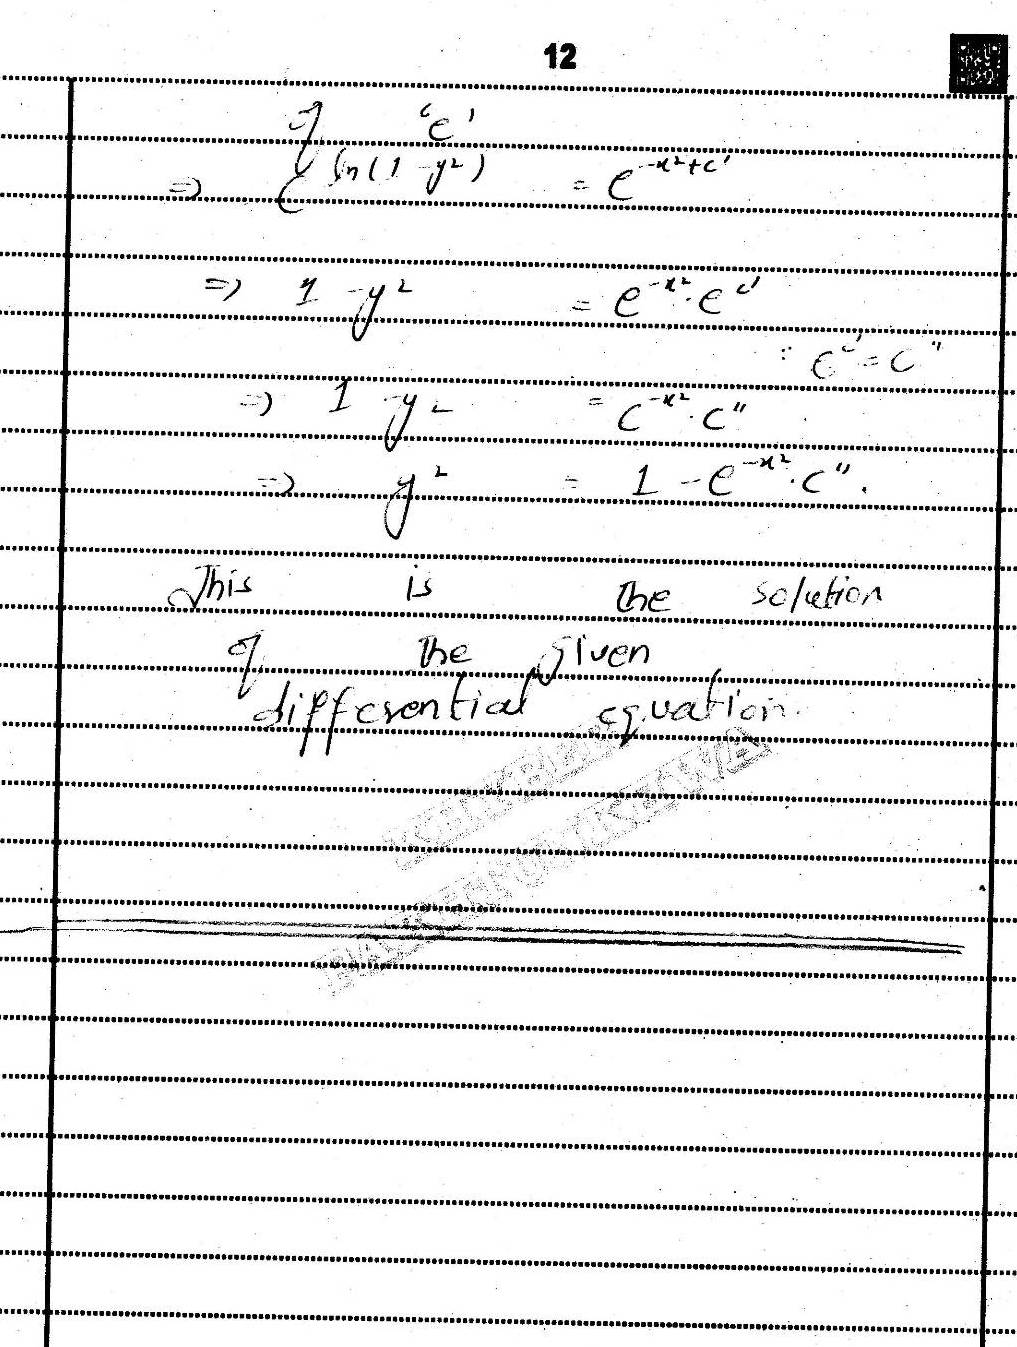 12
of 'e'
=> e^ln(1-y²) = e^-x²+c'
=> 1-y² = e^-x².e^c'
∵ e^c' = c"
=> 1-y² = e^-x².c"
=> y² = 1-e^-x².c".
This is the solution
of the given
differential equation.
KHYBER
PAKHTUNKHWA